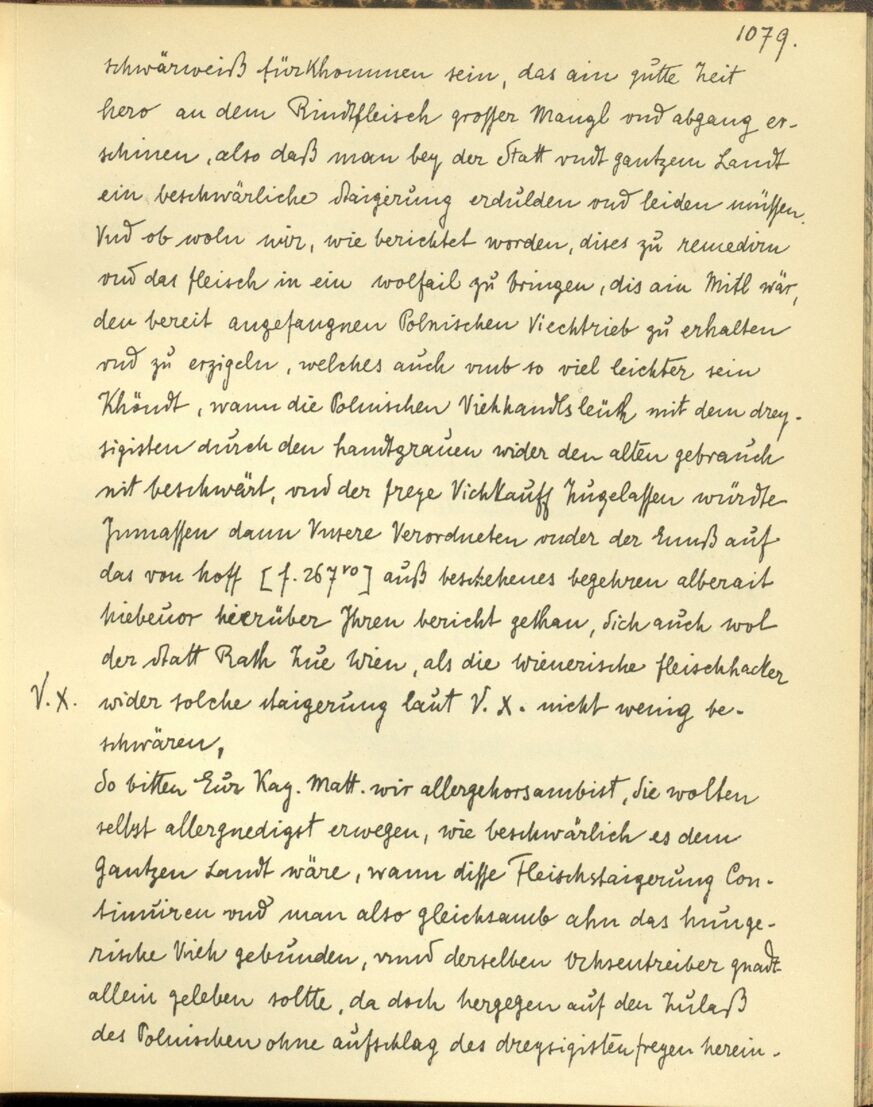 1079.
schwärweiß fürkhommen sein, das ain gutte Zeit
hero an dem Rindtfleisch grosser Mangl vnd abgang er-
schinen, also daß man bey der Statt vndt gantzem Landt
ein beschwärliche staigerung erdulden vnd leiden müssen.
Vnd ob woln wir, wie berichtet worden, dises zu remedirn
vnd das fleisch in ein wolfail zu bringen, dis ain Mitl wär,
den bereit angefangnen Polnischen Viechtrieb zu erhalten
vnd zu erzigeln, welches auch vmb so viel leichter sein
Khöndt, wann die Polnischen Viehhandlsleüth mit dem drey-
sigisten durch den handtgrauen wider den alten gebrauch
nit beschwärt, vnd der freye Viehkauff Zugelassen würdte
Inmassen dann Vnsere Verordneten vnder der Ennß auf
das von hoff [f. 267vo] auß beschehenes begehren alberait
hiebeuor hierüber Ihren bericht gethan, Sich auch wol
der Statt Rath Zue Wien, als die wienerische fleischhacker
V. X. wider solche staigerung laut V. X. nicht wenig be-
schwären,
So bitten Eür Kay. Matt. wir allergehorsambist, Sie wolten
selbst allergnedigst erwegen, wie beschwärlich es dem
Gantzen Landt wäre, wann disse Fleischstaigerung Con-
tinuiren vnd man also gleichsamb ahn das hunge-
rische Vieh gebunden, vnnd derselben Ochsentreiber gnadt
allein geleben soltte, da doch hergegen auf den Zulaß
des Polnischen ohne aufschlag des dreysigisten freyen herein-